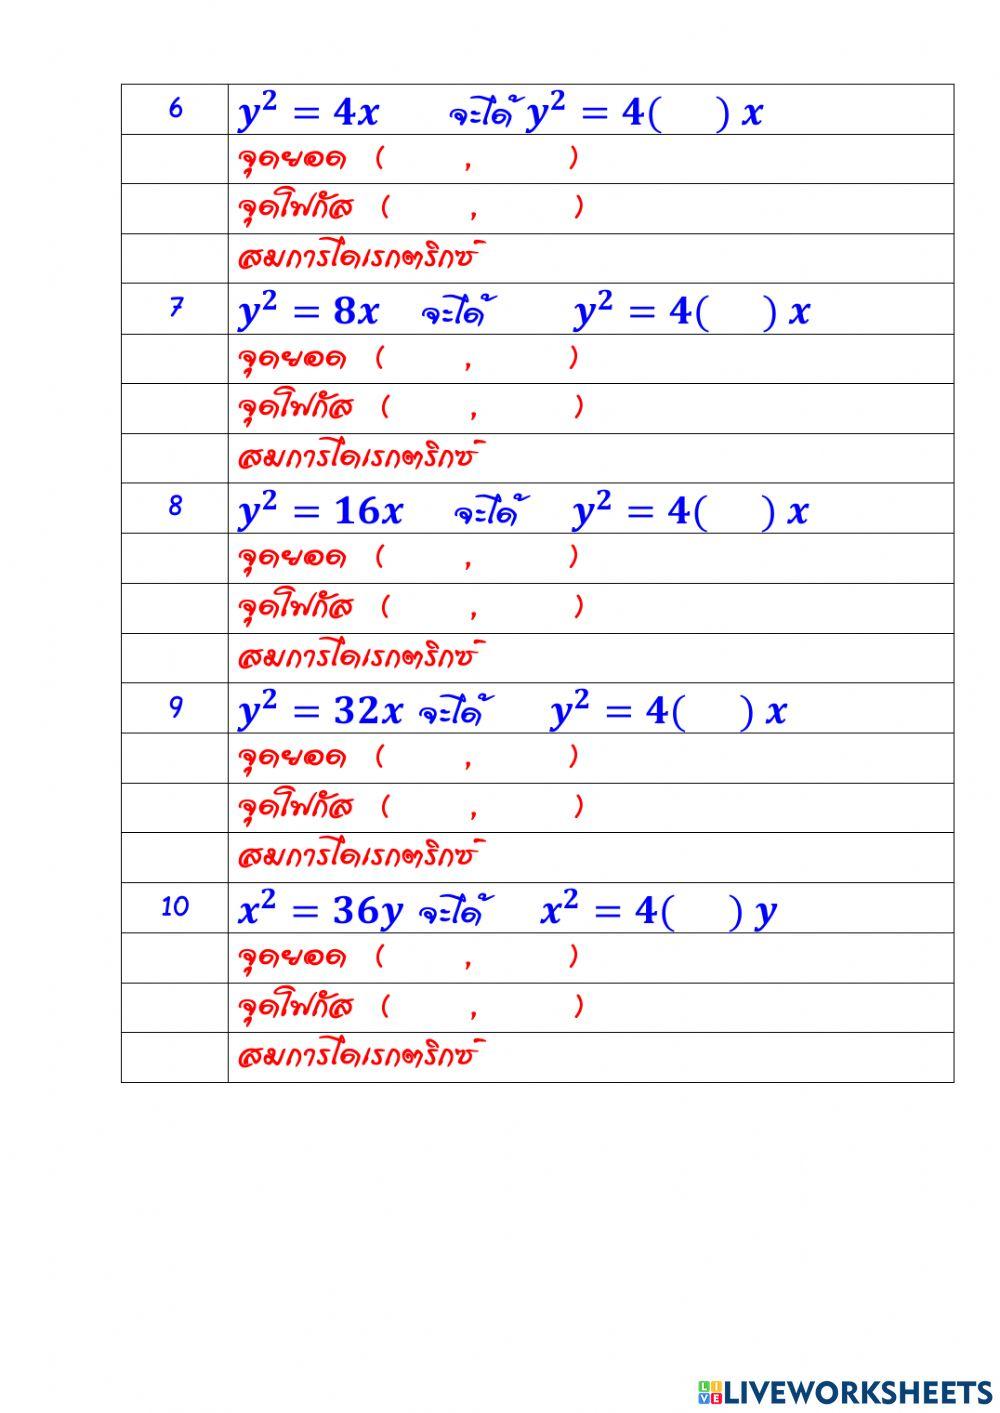 6 y² = 4x จะได้ y² = 4( ) x
จุดยอด ( , )
จุดโฟกัส ( , )
สมการไดเรกตริกซ์
7 y² = 8x จะได้ y² = 4( ) x
จุดยอด ( , )
จุดโฟกัส ( , )
สมการไดเรกตริกซ์
8 y² = 16x จะได้ y² = 4( ) x
จุดยอด ( , )
จุดโฟกัส ( , )
สมการไดเรกตริกซ์
9 y² = 32x จะได้ y² = 4( ) x
จุดยอด ( , )
จุดโฟกัส ( , )
สมการไดเรกตริกซ์
10 x² = 36y จะได้ x² = 4( ) y
จุดยอด ( , )
จุดโฟกัส ( , )
สมการไดเรกตริกซ์
LIVE LIVEWORKSHEETS